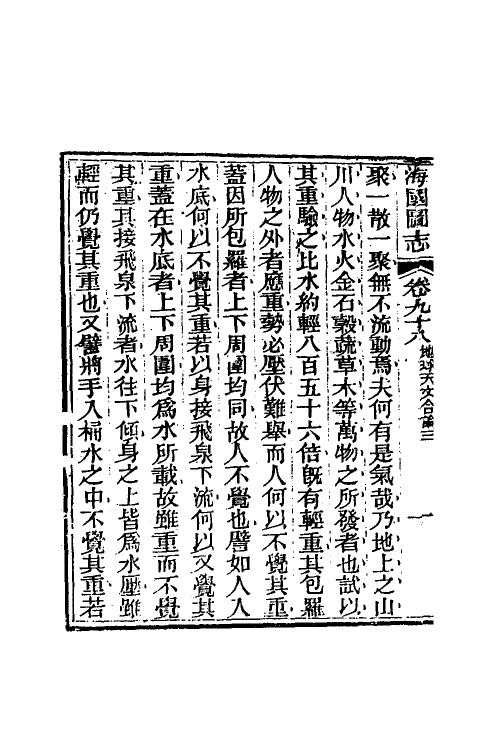 海國圖志 卷九十八 地球天文合論三 一
聚一散一聚無不流動焉夫何有是氣哉乃地上之山
川人物水火金石穀蔬草木等萬物之所發者也試以
其重驗之比水約輕八百五十六倍旣有輕重其包羅
人物之外者應重勢必壓伏難舉而人何以不覺其重
蓋因所包羅者上下周圍均同故人不覺也譬如人入
水底何以不覺其重若以身接飛泉下流何以又覺其
重蓋在水底者上下周圍均爲水所載故雖重而不覺
其重其接飛泉下流者水往下傾身之上皆爲水壓雖
輕而仍覺其重也又譬將手入桶水之中不覺其重若